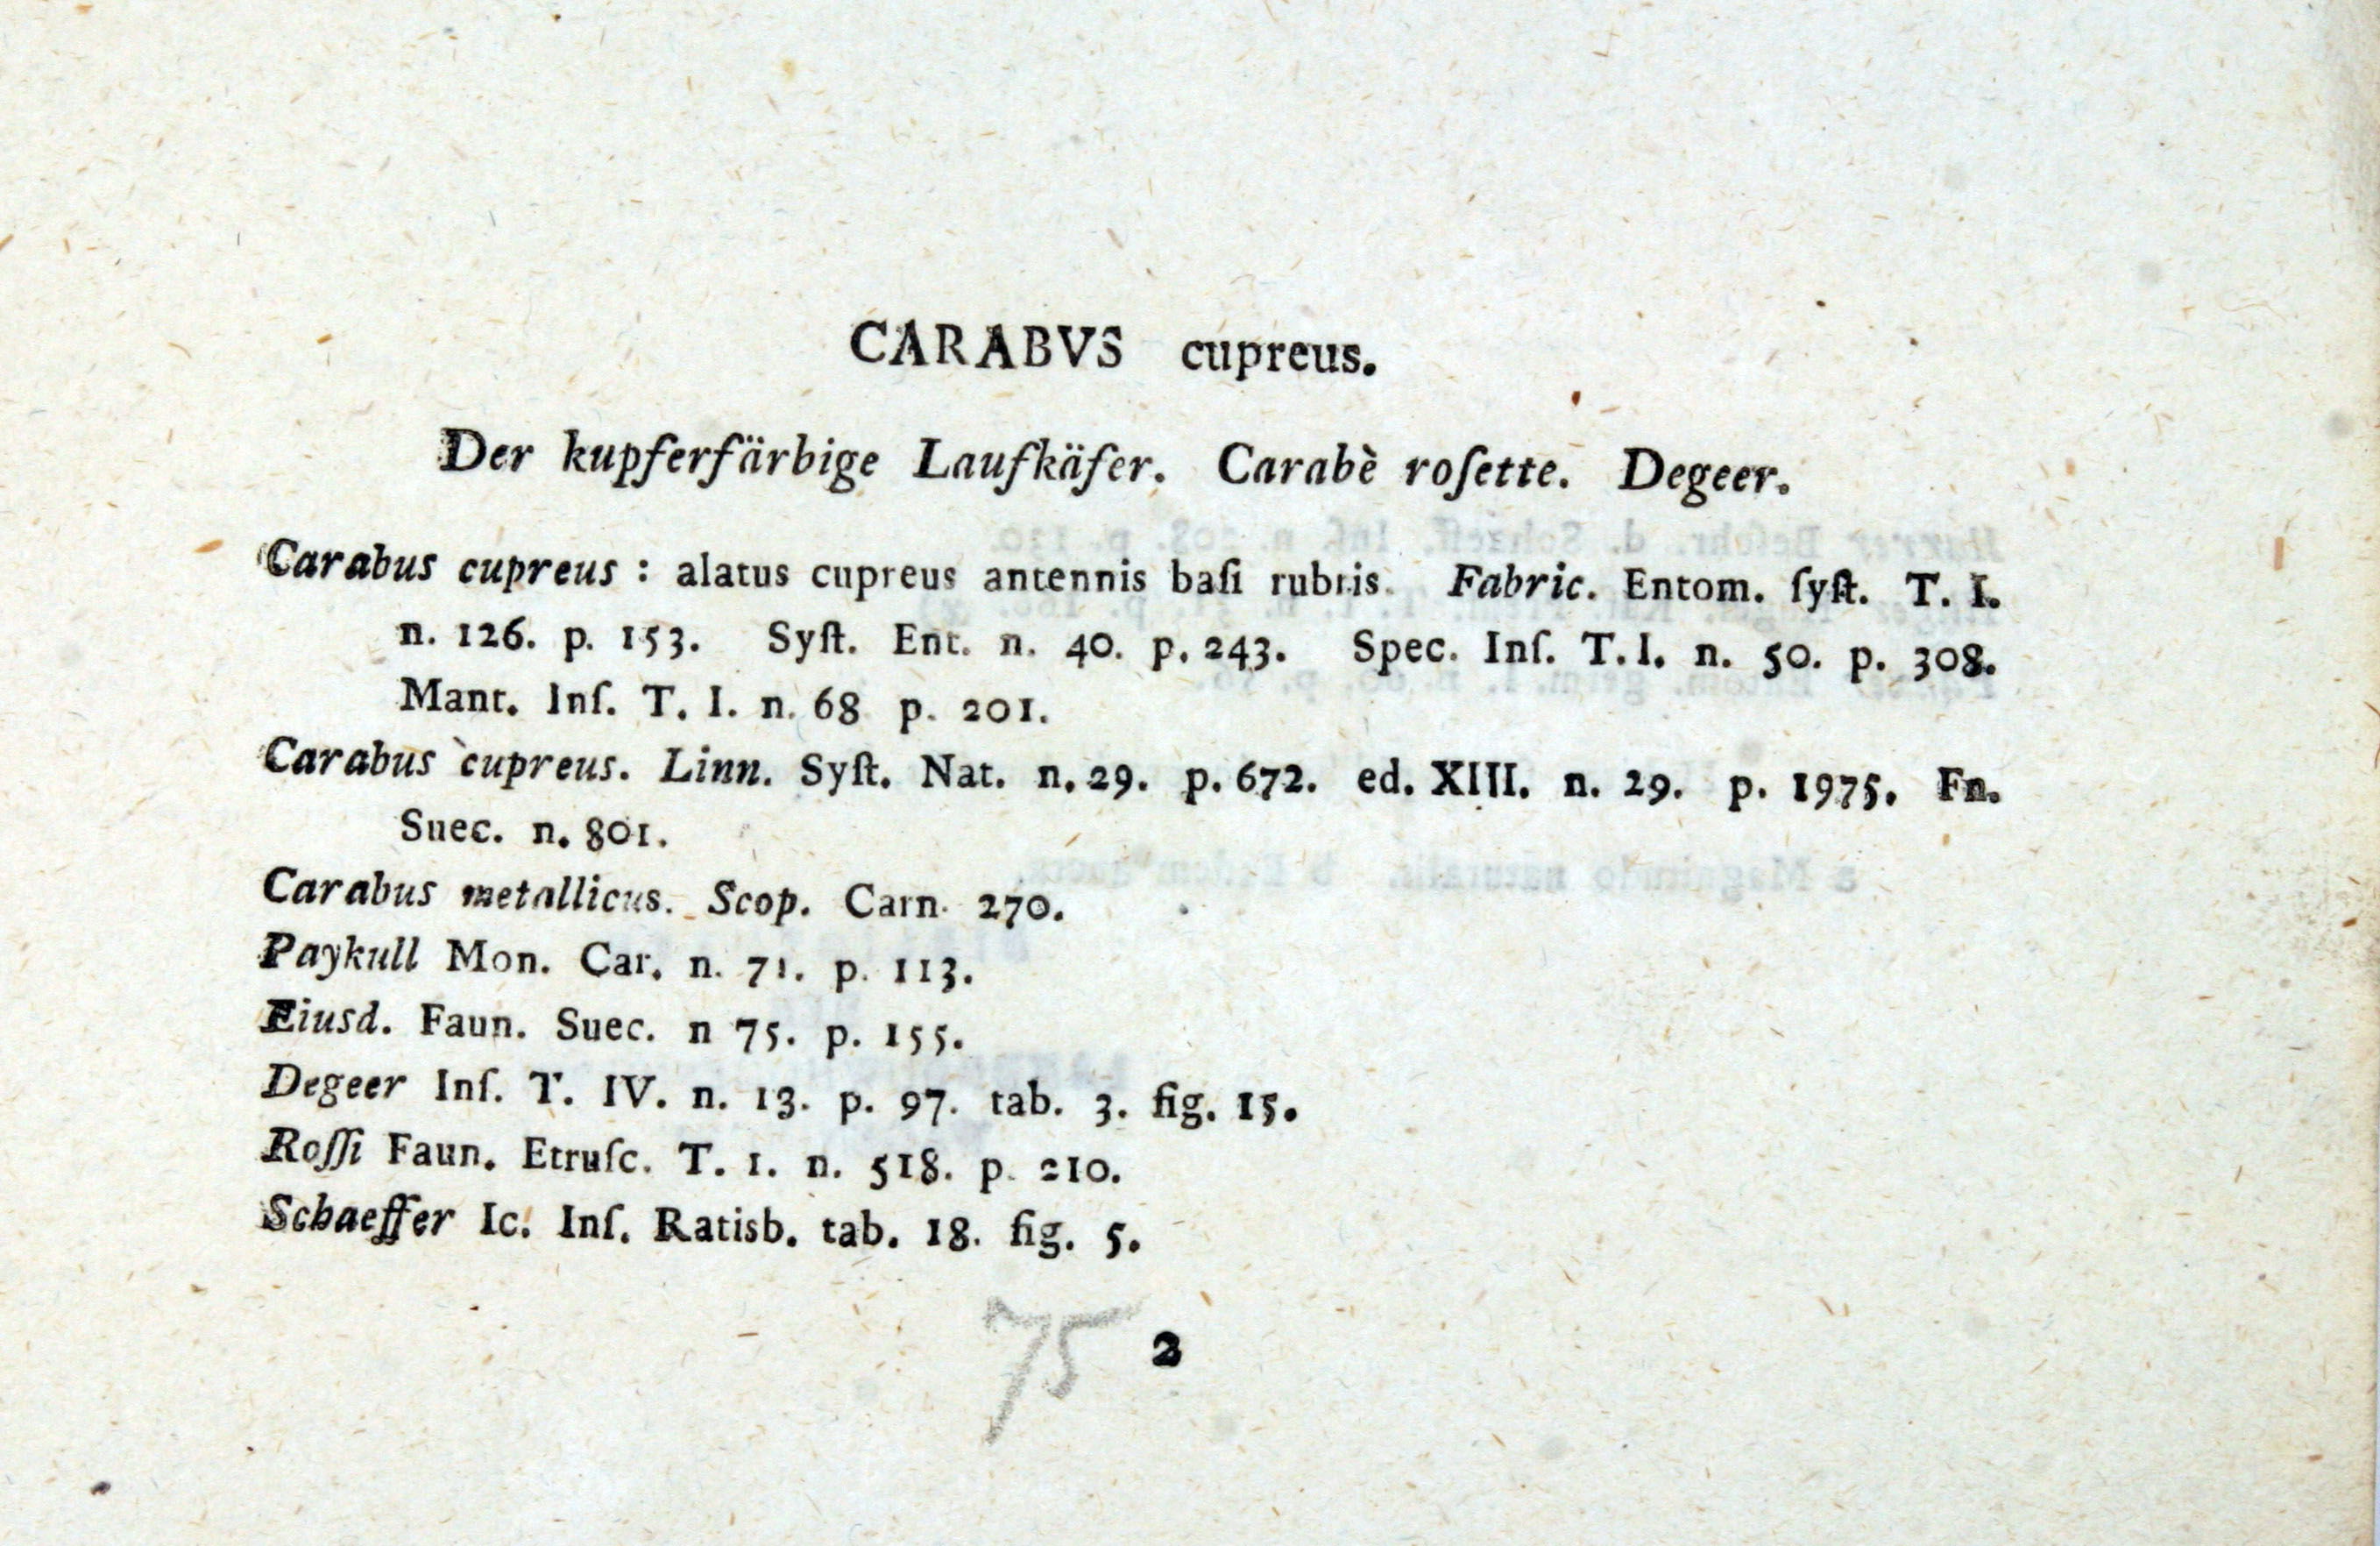 CARABVS cupreus.
Der kupferfärbige Laufkäfer. Carabè roſette. Degeer.
Carabus cupreus : alatus cupreus antennis baſi rubris. Fabric. Entom. ſyſt. T. I.
n. 126. p. 153. Syſt. Ent. n. 40. p. 243. Spec. Inſ. T. I. n. 50. p. 308.
Mant. Inſ. T. I. n. 68 p. 201.
Carabus cupreus. Linn. Syſt. Nat. n. 29. p. 672. ed. XIII. n. 29. p. 1975. Fn.
Suec. n. 801.
Carabus metallicus. Scop. Carn. 270.
Paykull Mon. Car. n. 71. p. 113.
Eiusd. Faun. Suec. n 75. p. 155.
Degeer Inſ. T. IV. n. 13. p. 97. tab. 3. fig. 15.
Roſſi Faun. Etruſc. T. 1. n. 518. p. 210.
Schaeffer Ic. Inſ. Ratisb. tab. 18. fig. 5.
75 2